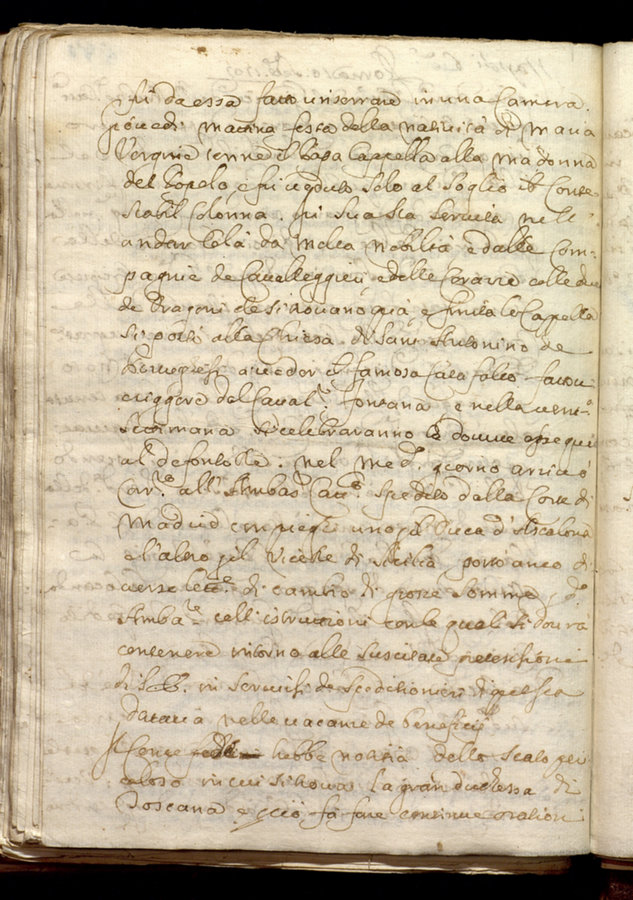 fu da essa fatto inserrare in una Camera.
Giovedì mattina festa della natività di Maria
Vergine tenne il Papa Cappella alla Madonna
del Popolo, e fu veduto solo al Soglio il Conte
stabil Colonna. fu Sua Sta servita nell'
andar colà da molta nobiltà e dalle Com-
pagnie de Cavalleggieri, e delle Corazze colle due
de Dragoni che si trovano quà, e finita la Cappella
si portò alla Chiesa di Sant Antonino de
Portughesi a veder il famoso Catafalco fatto
eriggere dal Caval.r Fontana e nella ven.a
settimana si celebraranno le dovute essequi
al defonto Re. nel med.o giorno arrivò
Cor.e all' Ambas.r Catt.o spedito dalla Corte di
Madrid con pieghi uno p il Duca d'Ascalona
e l'altro p il Vicerè di Sicilia portò anco di
verse lett.e di cambio di grosse somme, a d.o
Amba.re coll' istruzzioni con le quali si dovrà
contenere intorno alle suscitate pretensioni
di S.B. in servitij de Speditionieri di questa
Dataria nelle vacanze de beneficij
Il Conte hebbe notitia dello stato peri
coloso in cui si trova la gran duchessa di
Toscana e p ciò fà fare continue orationi